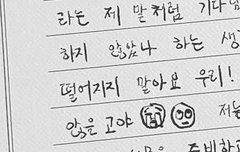 라는 제 말처럼 기다
하지 않았나 하는 생
떨어지지 말아요 우리!
않을 고야 저